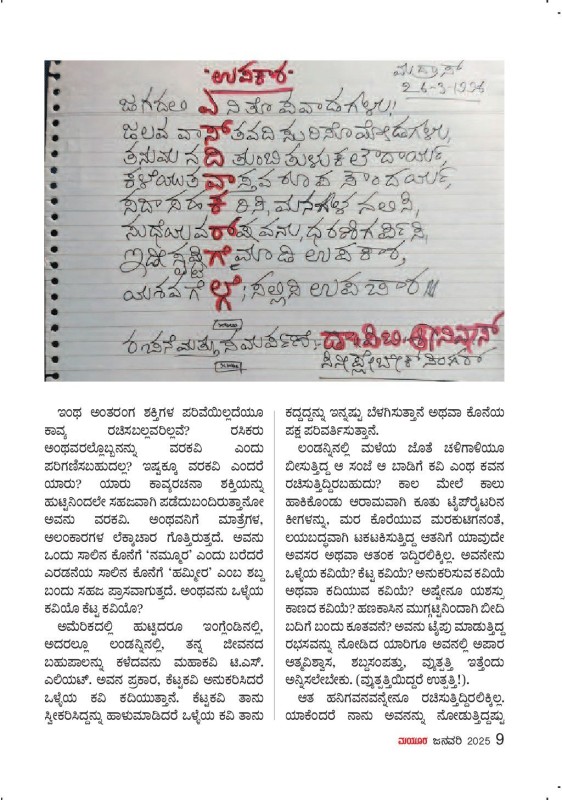 ಉಪಕಾರ
ಮದ್ರಾಸ್
ಜಗದಲಿ ಎನಿತೊ ಪವಾಡಗಳು!
ತನುಮನದಿ ತುಂಬಿ ತುಳುಕಲೌದಾರ್ಯ,
ಸದಾ ಸಹಕರಿಸಿ, ಮನಗಳ ನಲಿಸಿ,
ಮಾಡಿ ಉಪಕಾರ,
ಸಲ್ಲಿಸಿ ಉಪಚಾರ!!
ರಚನೆ ಮತ್ತು ಸಮರ್ಪಣೆ:
ಇಂಥ ಅಂತರಂಗ ಶಕ್ತಿಗಳ ಪರಿವೆಯಿಲ್ಲದೆಯೂ
ಕಾವ್ಯ ರಚಿಸಬಲ್ಲವರಿಲ್ಲವೆ? ರಸಿಕರು
ಅಂಥವರಲ್ಲೊಬ್ಬನನ್ನು ವರಕವಿ ಎಂದು
ಪರಿಗಣಿಸಬಹುದಲ್ಲ? ಇಷ್ಟಕ್ಕೂ ವರಕವಿ ಎಂದರೆ
ಯಾರು? ಯಾರು ಕಾವ್ಯರಚನಾ ಶಕ್ತಿಯನ್ನು
ಹುಟ್ಟಿನಿಂದಲೇ ಸಹಜವಾಗಿ ಪಡೆದುಬಂದಿರುತ್ತಾನೋ
ಅವನು ವರಕವಿ. ಅಂಥವನಿಗೆ ಮಾತ್ರೆಗಳ,
ಅಲಂಕಾರಗಳ ಲೆಕ್ಕಾಚಾರ ಗೊತ್ತಿರುತ್ತದೆ. ಅವನು
ಒಂದು ಸಾಲಿನ ಕೊನೆಗೆ ‘ನಮ್ಮೂರ’ ಎಂದು ಬರೆದರೆ
ಎರಡನೆಯ ಸಾಲಿನ ಕೊನೆಗೆ ‘ಹಮ್ಮೀರ’ ಎಂಬ ಶಬ್ದ
ಬಂದು ಸಹಜ ಪ್ರಾಸವಾಗುತ್ತದೆ. ಅಂಥವನು ಒಳ್ಳೆಯ
ಕವಿಯೊ ಕೆಟ್ಟ ಕವಿಯೊ?
ಅಮೆರಿಕದಲ್ಲಿ ಹುಟ್ಟಿದರೂ ಇಂಗ್ಲೆಂಡಿನಲ್ಲಿ,
ಅದರಲ್ಲೂ ಲಂಡನ್ನಿನಲ್ಲಿ, ತನ್ನ ಜೀವನದ
ಬಹುಪಾಲನ್ನು ಕಳೆದವನು ಮಹಾಕವಿ ಟಿ.ಎಸ್.
ಎಲಿಯಟ್. ಅವನ ಪ್ರಕಾರ, ಕೆಟ್ಟಕವಿ ಅನುಕರಿಸಿದರೆ
ಒಳ್ಳೆಯ ಕವಿ ಕದಿಯುತ್ತಾನೆ. ಕೆಟ್ಟಕವಿ ತಾನು
ಸ್ವೀಕರಿಸಿದ್ದನ್ನು ಹಾಳುಮಾಡಿದರೆ ಒಳ್ಳೆಯ ಕವಿ ತಾನು
ಕದ್ದದ್ದನ್ನು ಇನ್ನಷ್ಟು ಬೆಳಗಿಸುತ್ತಾನೆ ಅಥವಾ ಕೊನೆಯ
ಪಕ್ಷ ಪರಿವರ್ತಿಸುತ್ತಾನೆ.
ಲಂಡನ್ನಿನಲ್ಲಿ ಮಳೆಯ ಜೊತೆ ಚಳಿಗಾಳಿಯೂ
ಬೀಸುತ್ತಿದ್ದ ಆ ಸಂಜೆ ಆ ಬಾಡಿಗೆ ಕವಿ ಎಂಥ ಕವನ
ರಚಿಸುತ್ತಿದ್ದಿರಬಹುದು? ಕಾಲ ಮೇಲೆ ಕಾಲು
ಹಾಕಿಕೊಂಡು ಆರಾಮವಾಗಿ ಕೂತು ಟೈಪ್‌ರೈಟರಿನ
ಕೀಗಳನ್ನು, ಮರ ಕೊರೆಯುವ ಮರಕುಟಿಗನಂತೆ,
ಲಯಬದ್ಧವಾಗಿ ಟಕಟಕಿಸುತ್ತಿದ್ದ ಆತನಿಗೆ ಯಾವುದೇ
ಅವಸರ ಅಥವಾ ಆತಂಕ ಇದ್ದಿರಲಿಕ್ಕಿಲ್ಲ. ಅವನೇನು
ಒಳ್ಳೆಯ ಕವಿಯೆ? ಕೆಟ್ಟ ಕವಿಯೆ? ಅನುಕರಿಸುವ ಕವಿಯೆ
ಅಥವಾ ಕದಿಯುವ ಕವಿಯೆ? ಅಷ್ಟೇನೂ ಯಶಸ್ಸು
ಕಾಣದ ಕವಿಯೆ? ಹಣಕಾಸಿನ ಮುಗ್ಗಟ್ಟಿನಿಂದಾಗಿ ಬೀದಿ
ಬದಿಗೆ ಬಂದು ಕೂತವನೆ? ಅವನು ಟೈಪು ಮಾಡುತ್ತಿದ್ದ
ರಭಸವನ್ನು ನೋಡಿದ ಯಾರಿಗೂ ಅವನಲ್ಲಿ ಅಪಾರ
ಆತ್ಮವಿಶ್ವಾಸ, ಶಬ್ದಸಂಪತ್ತು, ವ್ಯುತ್ಪತ್ತಿ ಇತ್ತೆಂದು
ಅನ್ನಿಸಲೇಬೇಕು. (ವ್ಯುತ್ಪತ್ತಿಯಿದ್ದರೆ ಉತ್ಪತ್ತಿ!).
ಆತ ಹನಿಗವನವನ್ನೇನೂ ರಚಿಸುತ್ತಿದ್ದಿರಲಿಕ್ಕಿಲ್ಲ.
ಯಾಕೆಂದರೆ ನಾನು ಅವನನ್ನು ನೋಡುತ್ತಿದ್ದಷ್ಟು
ಮಯೂರ ಜನವರಿ 2025 9